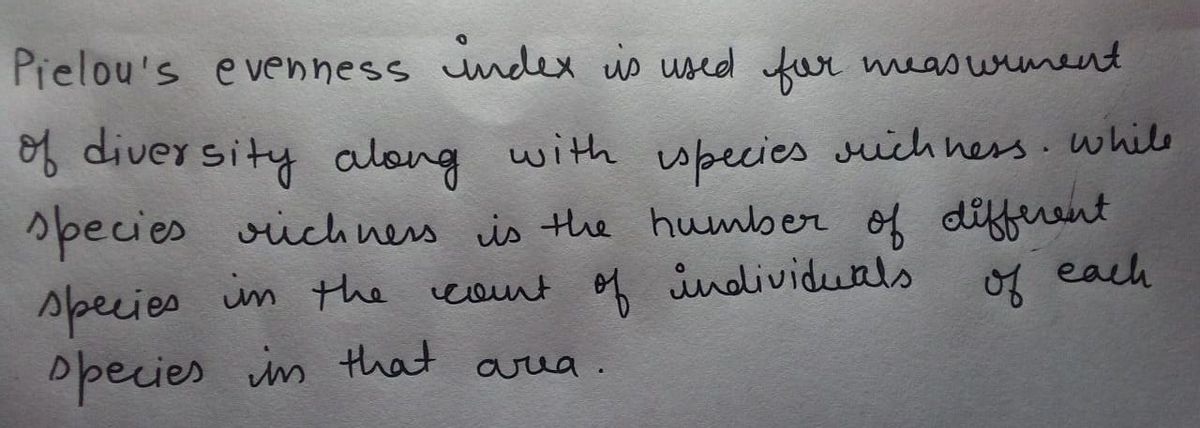 Pielou's evenness index is used for measurment
of diversity along with species richness. while
species richness is the number of different
species in the count of individuals of each
species in that area.